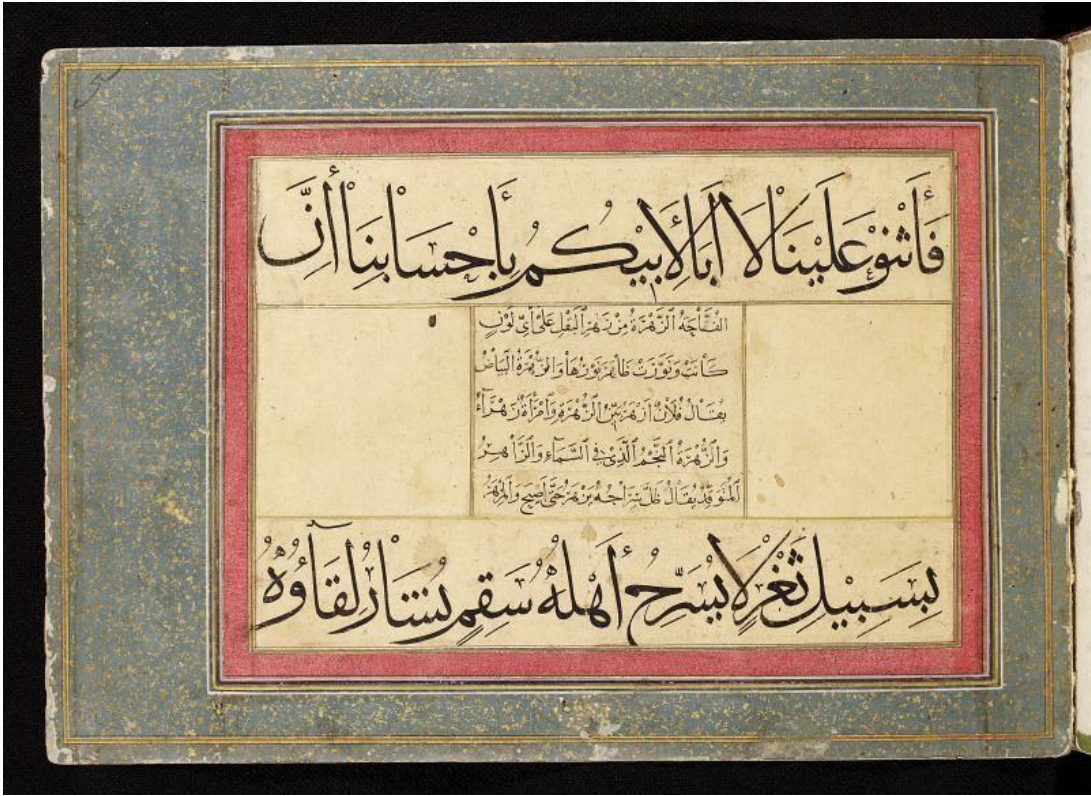 فَأَثْنوْ عَلَيْنَا لَا أَبَا لِأَبِيْكُمُ بِأَحْسَابِنَا أَنَّ
الزَّهْرَةُ مِنْ زَهْرِ البَقْلِ عَلَى أَيِّ لَوْنٍ
كَانَتْ وَنَوَّرَتْ ظَاهِرَ نَوْرِهَا وَالزُّهْرَةُ البَيَاضُ
يُقَالُ فُلَانٌ أَزْهَرُ بَيِّنُ الزُّهْرَةِ وَامْرَأَةٌ زَهْرَآءُ
وَالزُّهَرَةُ النَّجْمُ الَّذِيْ فِي السَّمَآءِ وَالزَّاهِرُ
المُتَوَقِّدُ يُقَالُ ظَلَّ سِرَاجُهُ يَزْهَرُ حَتَّى أَصْبَحَ وَالمِزْهَرُ
بِسَبِيْلِ ثَغْرٍ لَا يُسَرِّحُ أَهْلُهُ سَقِمٍ يُشَارُ لِقَآؤُهُ